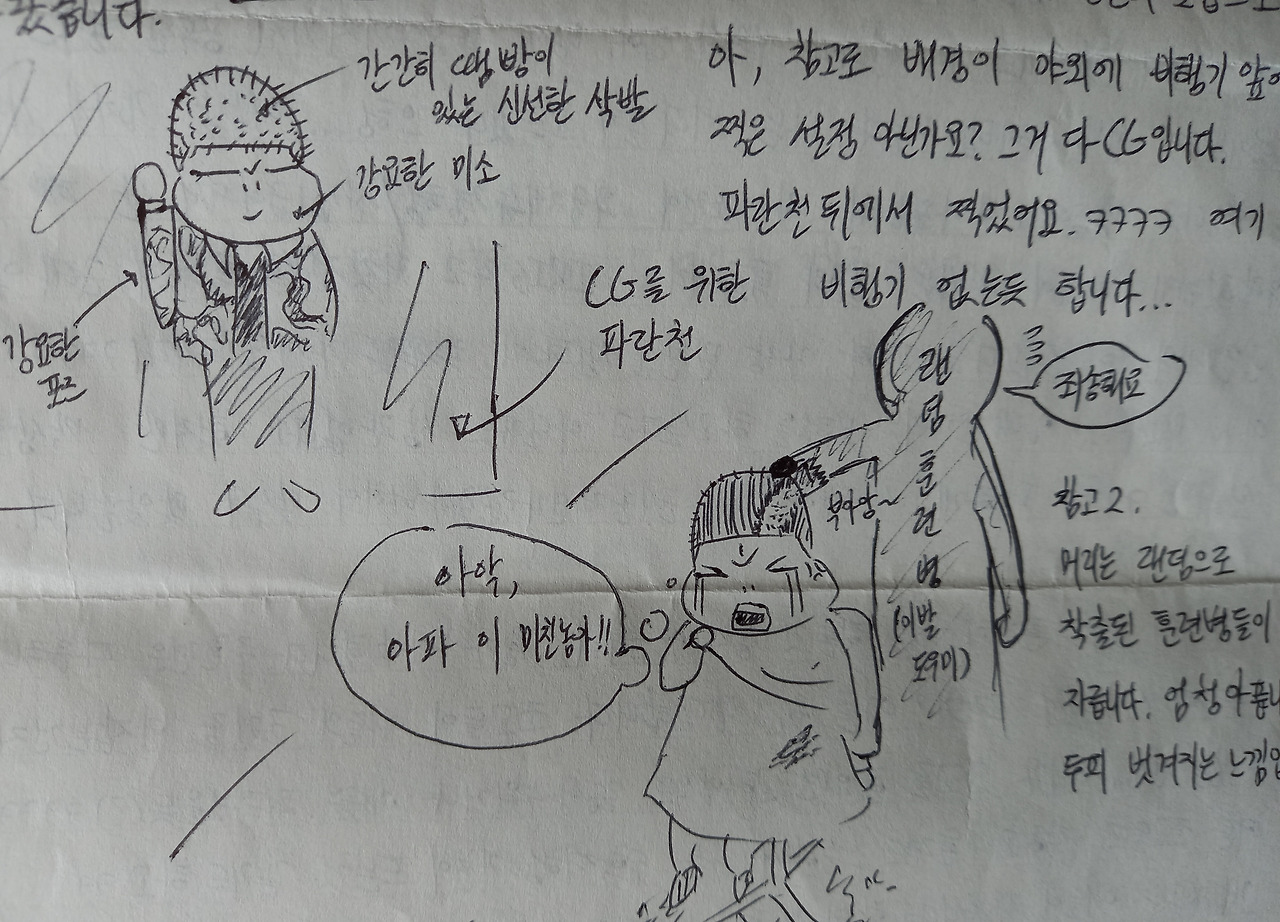 겠습니다.
간간히 땜빵이
있는 신선한 삭발
강요한 미소
강요한
포즈
아, 참고로 배경이 야외에 비행기 앞에
찍은 설정 아닌가요? 그거 다 CG입니다.
파란천 뒤에서 찍었어요. ㅋㅋㅋㅋ 여기
비행기 없는듯 합니다...
CG를 위한
파란천
랜덤훈련병
(이발
도우미)
죄송해요
부아앙~
아악,
아파 이 미친놈아!!
참고2.
머리는 랜덤으로
착출된 훈련병들이
자릅니다. 엄청아픕니
두피 벗겨지는 느낌입